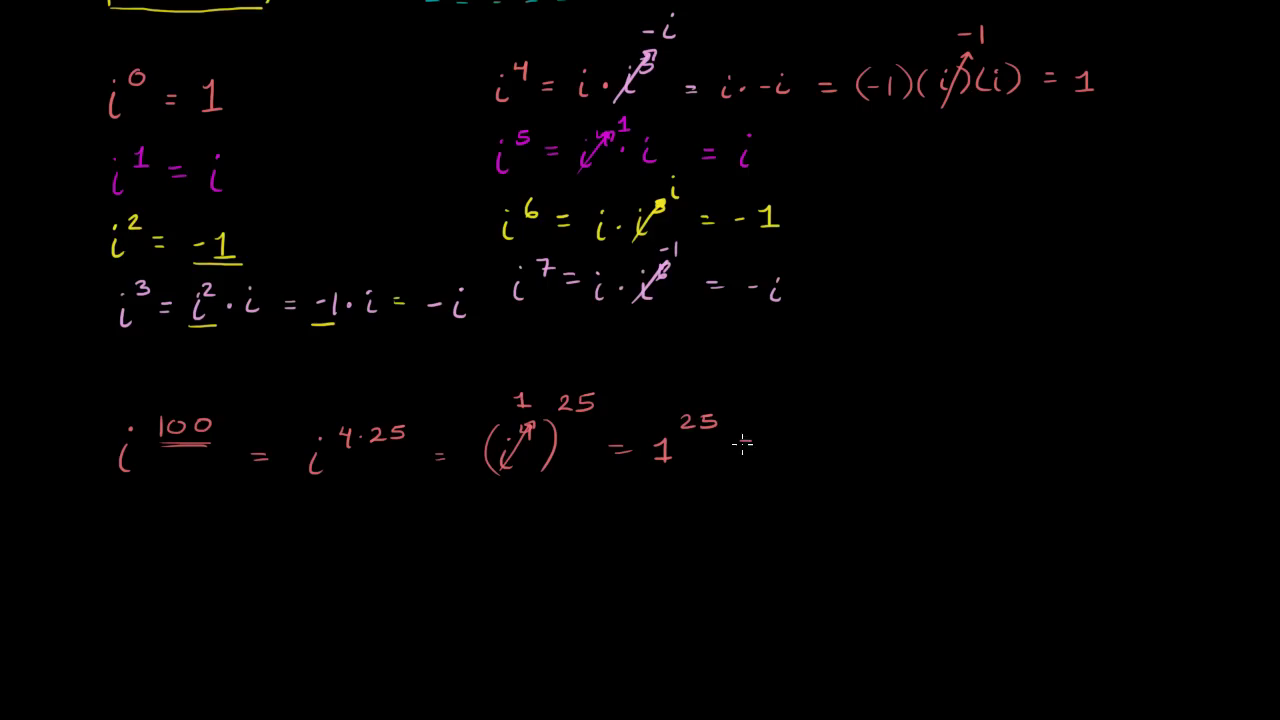 i^0 = 1
i^1 = i
i^2 = -1
i^3 = i^2 · i = -1 · i = -i
i^4 = i · i^3 -i = i · -i = (-1)(i)(i) -1 = 1
i^5 = i^4 1 · i = i
i^6 = i · i^5 i = -1
i^7 = i · i^6 -1 = -i
i^100 = i^4·25 = (i^4)^25 1 = 1^25 =